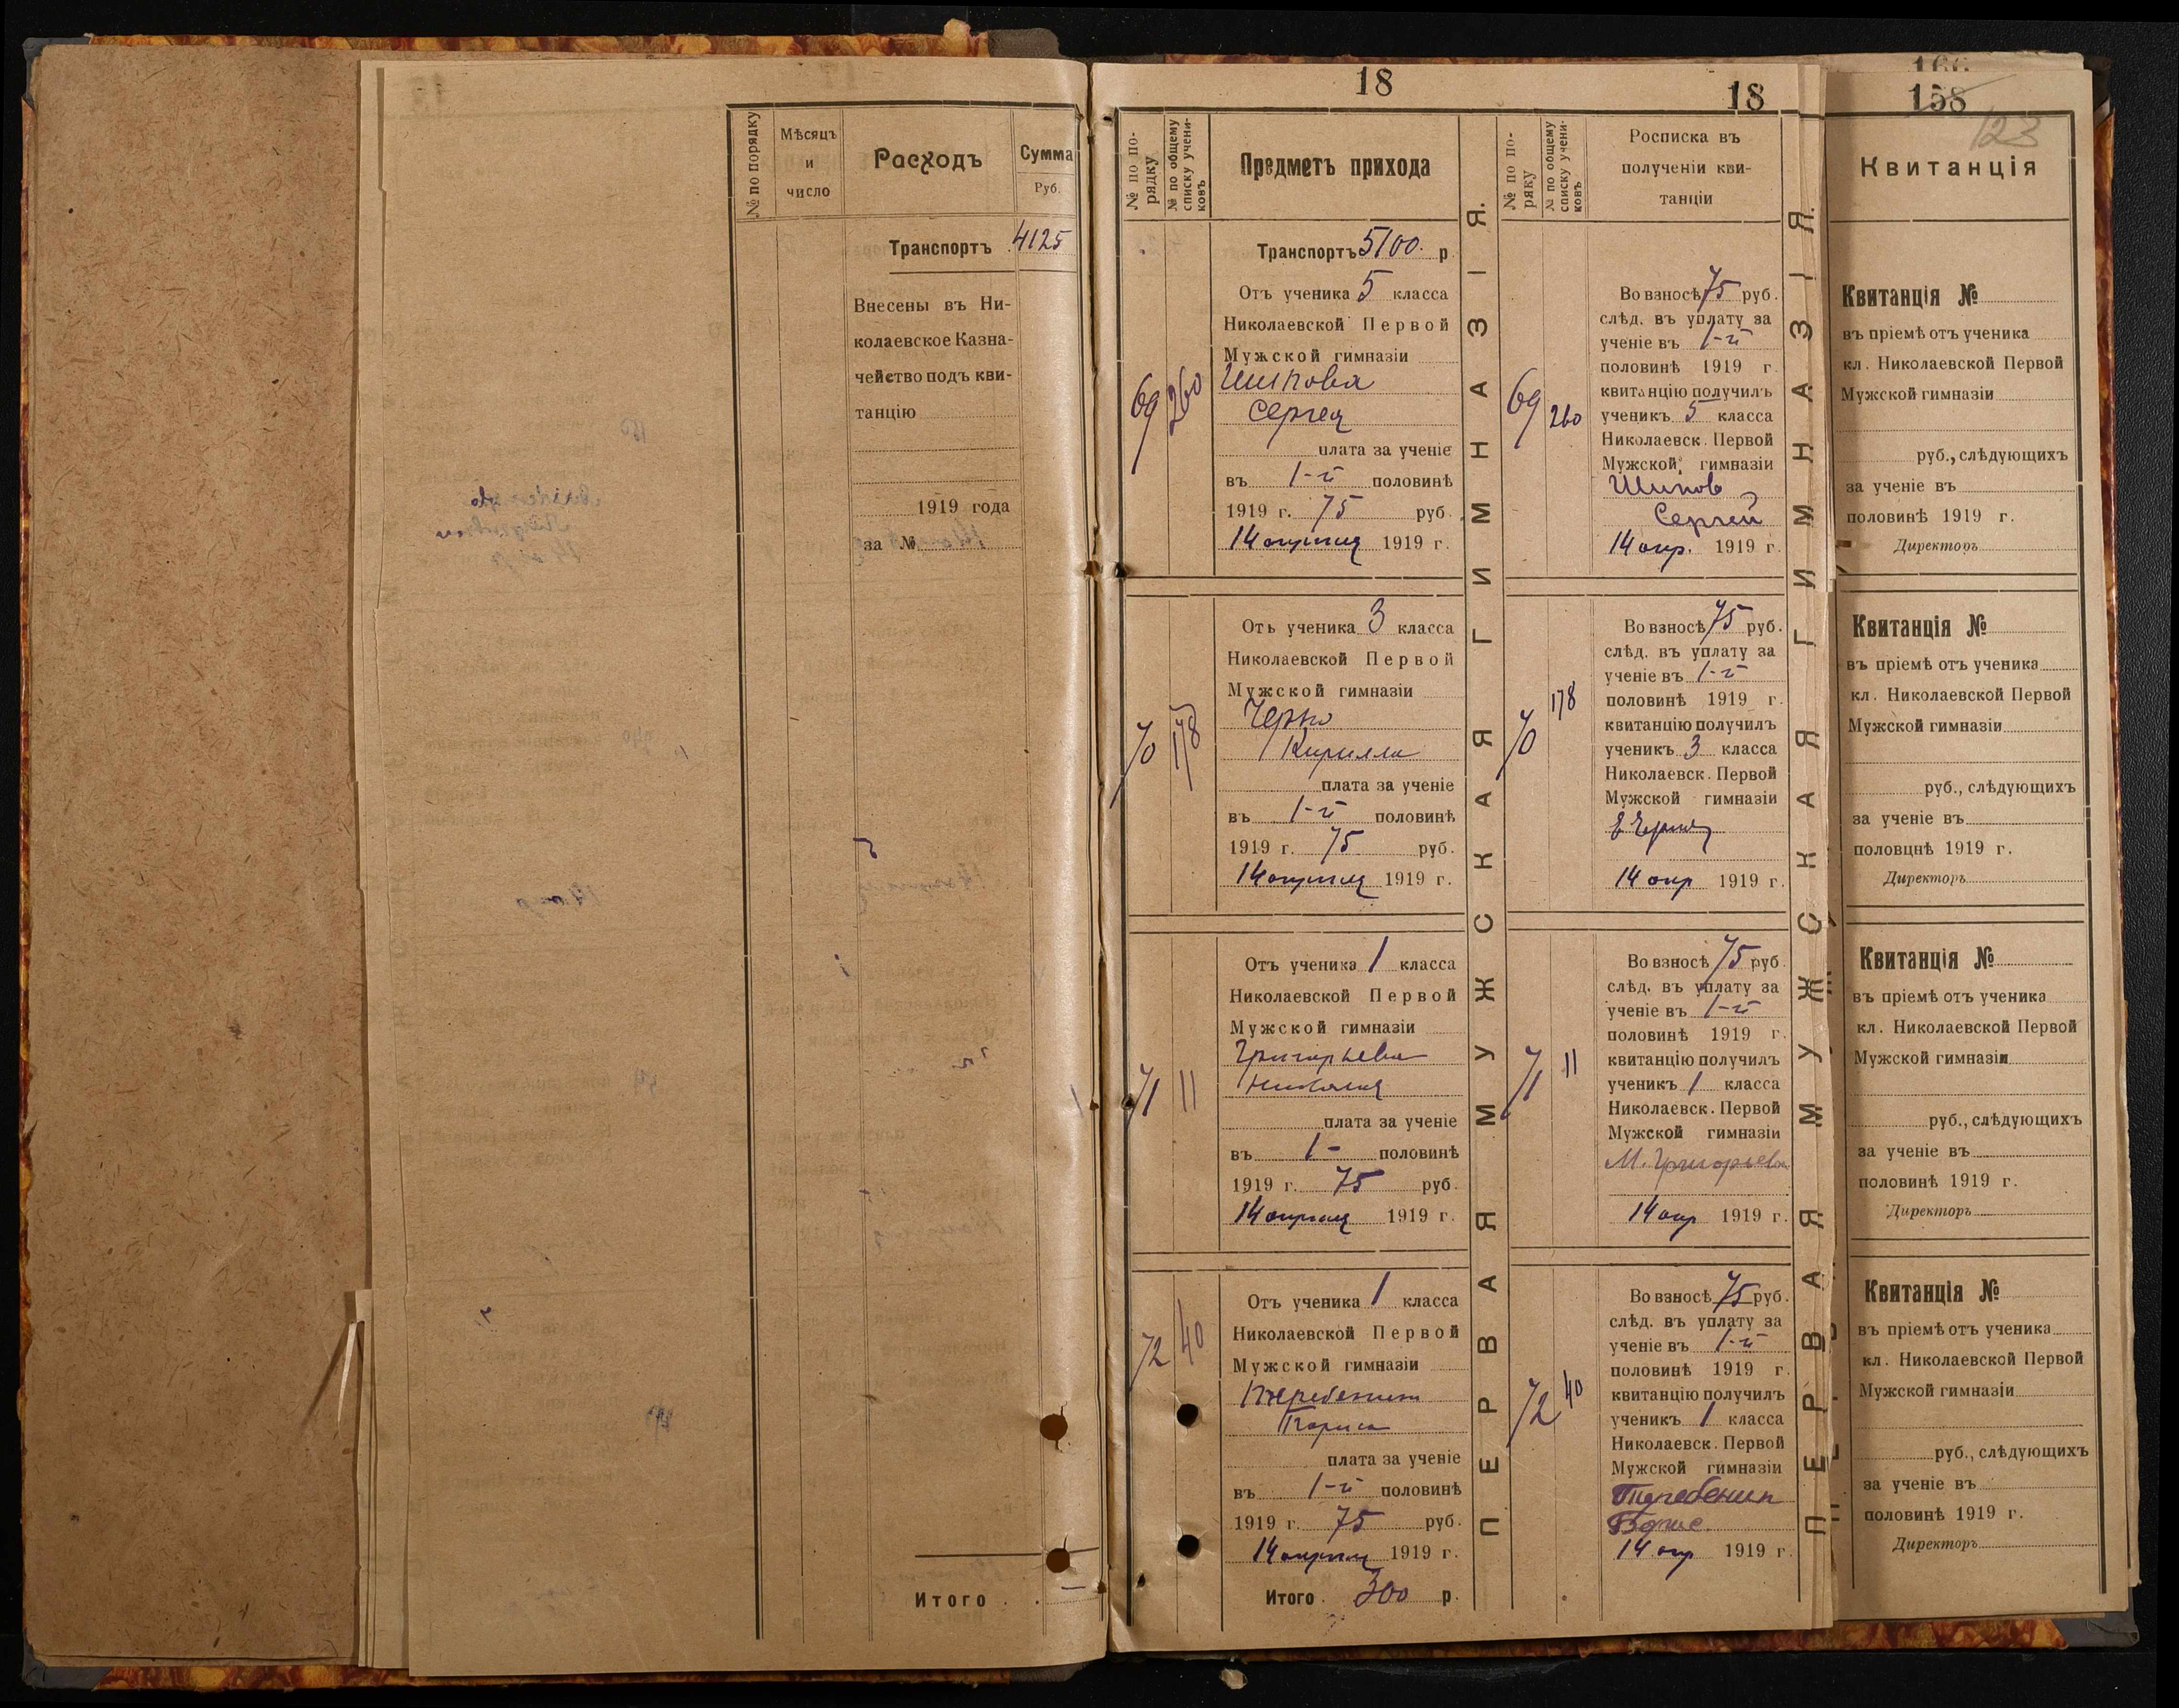 № по порядку
Мѣсяцъ
и
число
Расходъ
Сумма
Руб.
Транспортъ 4125
Внесены въ Ни-
колаевское Казна-
чейство подъ кви-
танцію
1919 года
за №
Итого . . —
18
№ по по-
рядку
№ по общему
списку учени-
ковъ
Предметъ прихода
Транспортъ 5100. р
69
260
Отъ ученика 5 класса
Николаевской Первой
Мужской гимназіи
Шипова
Сергея
плата за ученіе
въ 1-й половинѣ
1919 г. 75 руб.
14 апреля 1919 г.
70
178
Отъ ученика 3 класса
Николаевской Первой
Мужской гимназіи
Кирилла
плата за ученіе
въ 1-й половинѣ
1919 г. 75 руб.
14 апреля 1919 г.
71
11
Отъ ученика 1 класса
Николаевской Первой
Мужской гимназіи
Григорьева
Николая
плата за ученіе
въ 1- половинѣ
1919 г. 75 руб.
14 апреля 1919 г.
72
40
Отъ ученика 1 класса
Николаевской Первой
Мужской гимназіи
Теребенина
Бориса
плата за ученіе
въ 1-й половинѣ
1919 г. 75 руб.
14 апреля 1919 г.
Итого . 300 р.
ПЕРВАЯ МУЖСКАЯ ГИМНАЗІЯ.
18
№ по по-
ряку
№ по общему
списку учени-
ковъ
Росписка въ
полученіи кви-
танціи
69
260
Во взносѣ 75 руб.
слѣд. въ уплату за
ученіе въ 1-й
половинѣ 1919 г.
квитанцію получилъ
ученикъ 5 класса
Николаевск. Первой
Мужской гимназіи
Шипов
Сергей
14 апр. 1919 г.
70
178
Во взносѣ 75 руб.
слѣд. въ уплату за
ученіе въ 1-й
половинѣ 1919 г.
квитанцію получилъ
ученикъ 3 класса
Николаевск. Первой
Мужской гимназіи
14 апр 1919 г.
71
11
Во взносѣ 75 руб
слѣд. въ уплату за
ученіе въ 1-й
половинѣ 1919 г.
квитанцію получилъ
ученикъ 1 класса
Николаевск. Первой
Мужской гимназіи
М. Григорьева
14 апр 1919 г.
72
40
Во взносѣ 75 руб.
слѣд. въ уплату за
ученіе въ 1-й
половинѣ 1919 г.
квитанцію получилъ
ученикъ 1 класса
Николаевск. Первой
Мужской гимназіи
Теребенин
Борис.
14 апр 1919 г.
ПЕРВАЯ МУЖСКАЯ ГИМНАЗІЯ.
166
158
123
Квитанція
Квитанція №
въ пріемѣ отъ ученика
кл. Николаевской Первой
Мужской гимназіи
руб., слѣдующихъ
за ученіе въ
половинѣ 1919 г.
Директоръ
Квитанція №
въ пріемѣ отъ ученика
кл. Николаевской Первой
Мужской гимназіи
руб., слѣдующихъ
за ученіе въ
половцнѣ 1919 г.
Директоръ
Квитанція №
въ пріемѣ отъ ученика
кл. Николаевской Первой
Мужской гимназіи
руб., слѣдующихъ
за ученіе въ
половинѣ 1919 г.
Директоръ
Квитанція №
въ пріемѣ отъ ученика
кл. Николаевской Первой
Мужской гимназіи
руб., слѣдующихъ
за ученіе въ
половинѣ 1919 г.
Директоръ